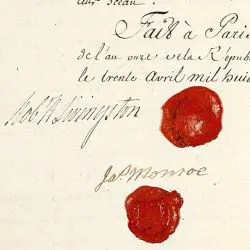 leur sceau.
Fait à Paris
de l'an onze de la Répub
le trente Avril mil huit
Rob R Livingston
Jas. Monroe